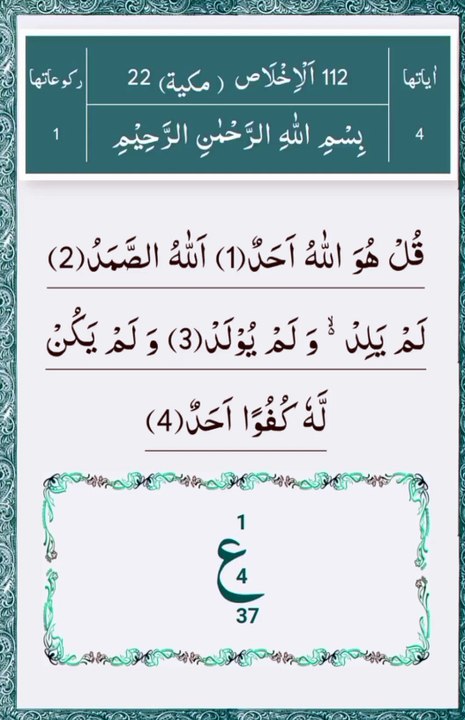 اٰیاتها 112 اَلْاِخْلَاص ( مکیة) 22 رکوعاتها
4 بِسْمِ اللّٰهِ الرَّحْمٰنِ الرَّحِیْمِ 1
قُلْ هُوَ اللّٰهُ اَحَدٌ(1) اَللّٰهُ الصَّمَدُ(2)
لَمْ یَلِدْ ۙ۬ وَ لَمْ یُوْلَدْ(3) وَ لَمْ یَكُنْ
لَّهٗ كُفُوًا اَحَدٌ(4)
1
ع
4
37